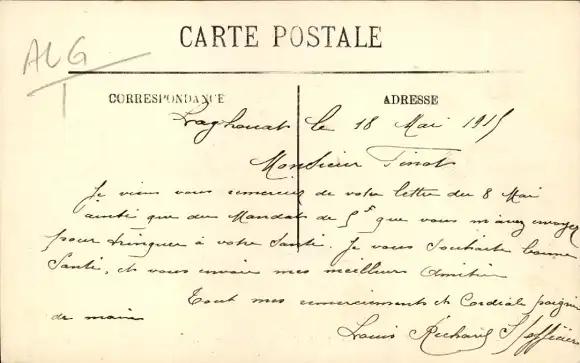 ALG
CARTE POSTALE
CORRESPONDANCE
ADRESSE
Laghouat le 18 Mai 1915
Monsieur Tinot
Je viens vous remercier de votre lettre du 8 Mai
ainsi que du Mandat de 5f que vous m'avez envoyer
pour tringuer à votre Santé. Je vous Souhaite bonne
Santé, et vous envoie mes meilleurs Amitiés
Tout mes remerciements et Cordiale poignée
de main
Louis Richard S/officier